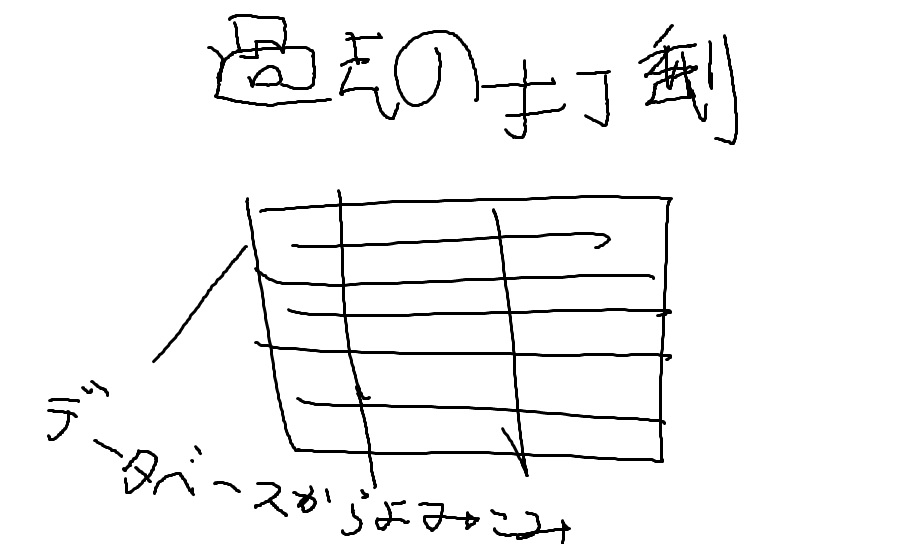 過去の打刻
データベースからよみこみ